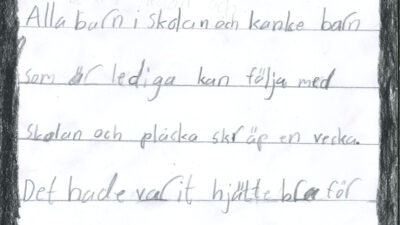 Alla barn i skolan och kanke barn
som är lediga kan följa med
skolan och placka skräp en vecka.
Det hade varit hjätte bra för